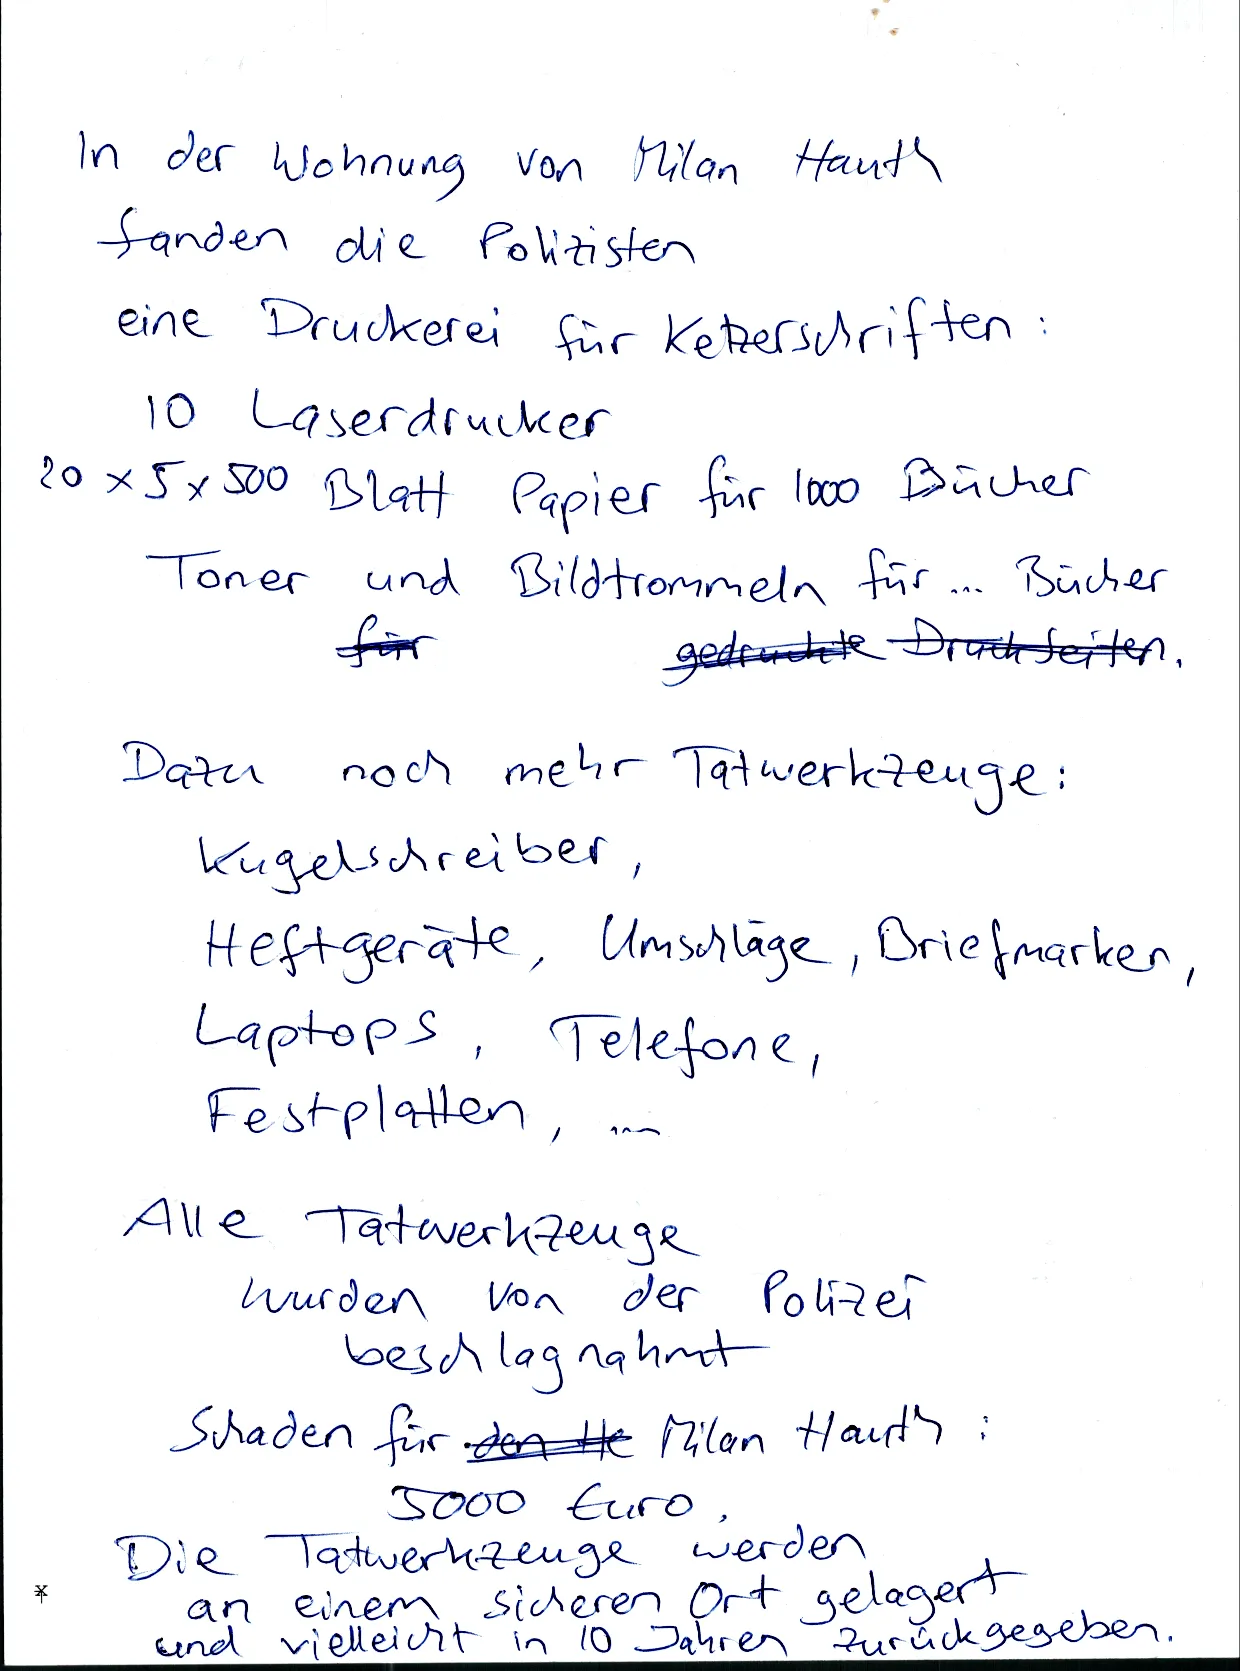 In der Wohnung von Milan Hauth
fanden die Polizisten
eine Druckerei für Ketzerschriften:
10 Laserdrucker
20 x 5 x 500 Blatt Papier für 1000 Bücher
Toner und Bildtrommeln für ... Bücher
für gedruckte Druckseiten.
Dazu noch mehr Tatwerkzeuge:
Kugelschreiber,
Heftgeräte, Umschläge, Briefmarken,
Laptops, Telefone,
Festplatten, ...
Alle Tatwerkzeuge
wurden von der Polizei
beschlagnahmt
Schaden für den He Milan Hauth:
5000 Euro.
Die Tatwerkzeuge werden
an einem sicheren Ort gelagert
und vielleicht in 10 Jahren zurückgegeben.